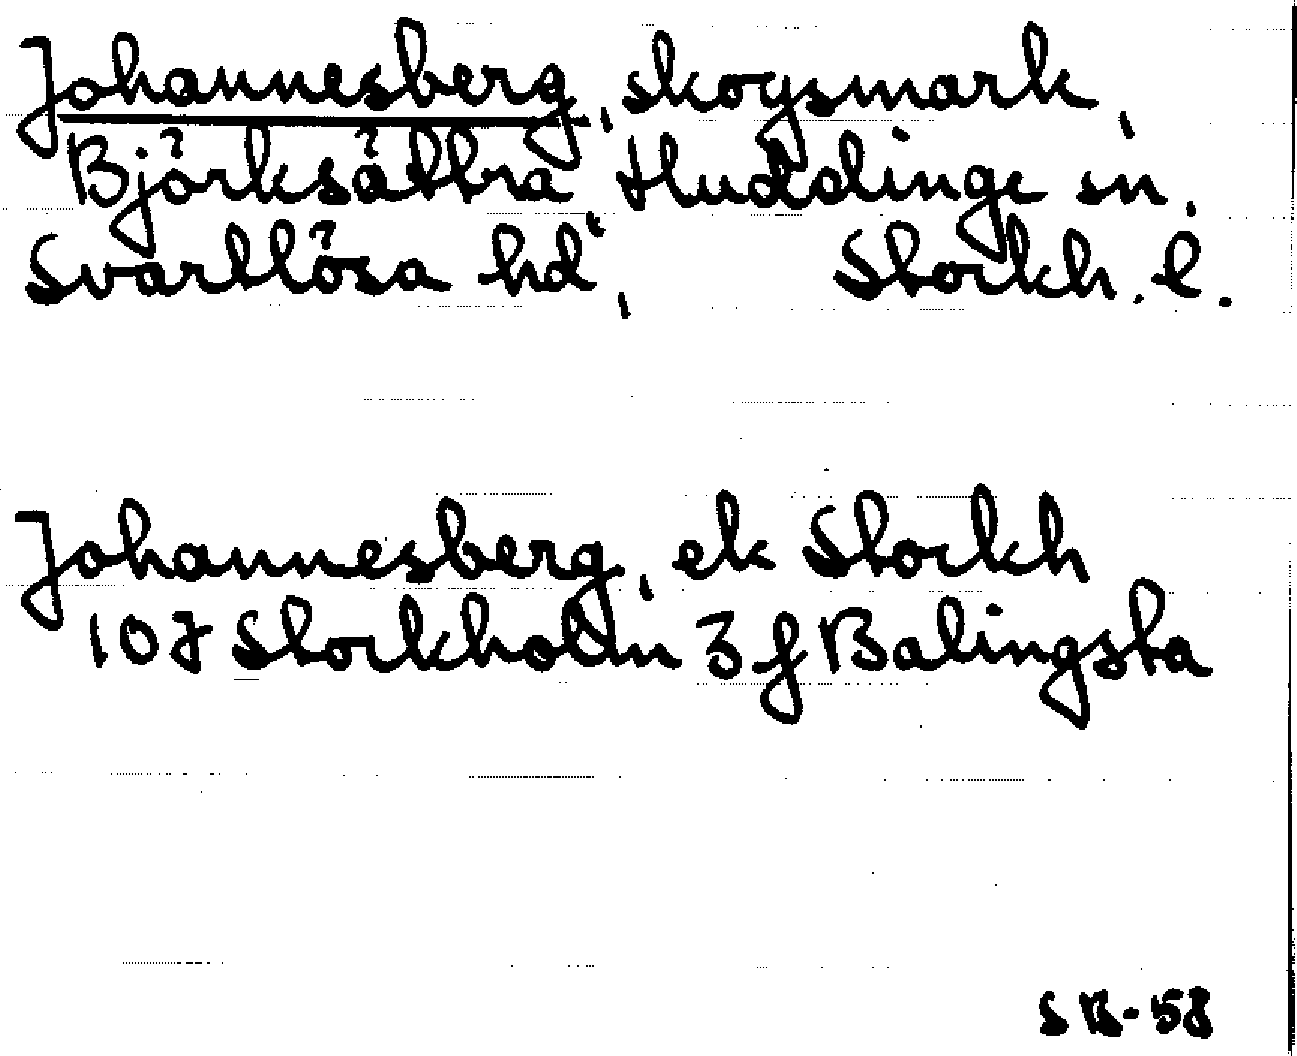 Johannesberg, skogsmark,
Björksättra, Huddinge sn.
Svartlösa hd, Stockh. l.
Johannesberg, ek Stockh
10J Stockholm 3f Balingsta
SB-58